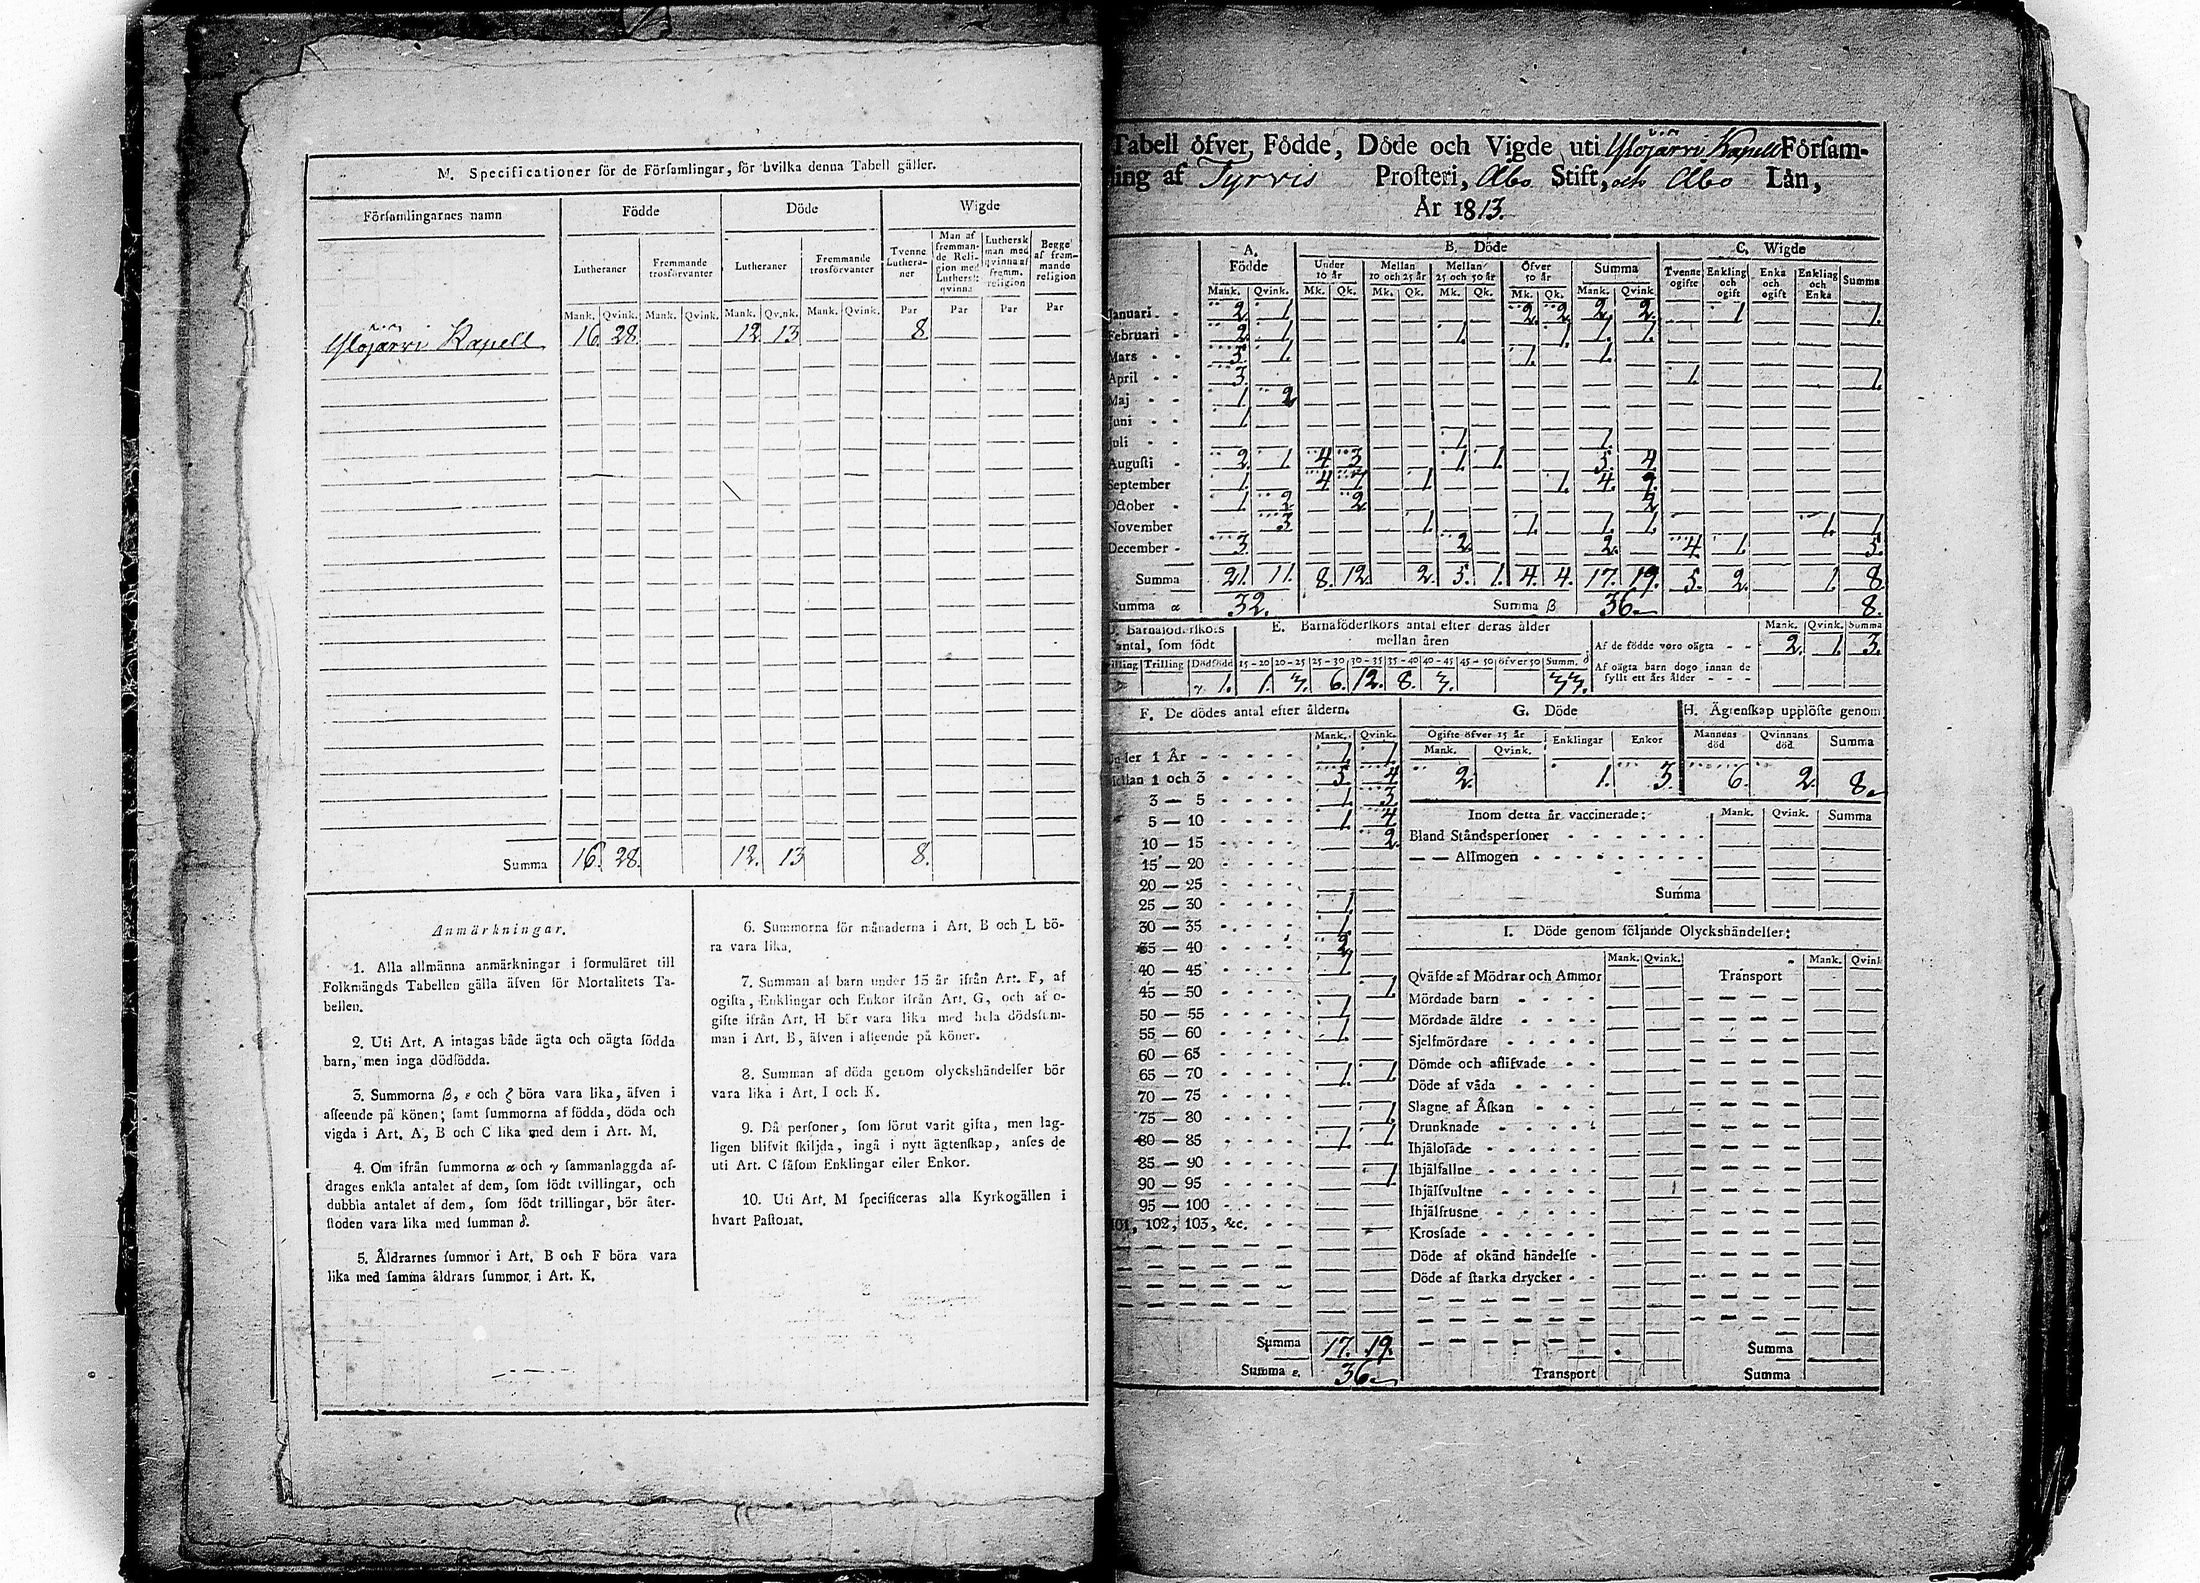 M. Specificationer för de Församlingar, för hvilka denna Tabell gäller.
Församlingarnes namn Födde Döde Wigde
Lutheraner Fremmande trosförvanter Lutheraner Fremmande trosförvanter Tvenne Lutheraner Man af fremmande Religion med Luthersk qvinna Luthersk man med qvinna af fremm. religion Begge af fremmande religion
Mank. Qvink. Mank. Qvink. Mank. Qvink. Mank. Qvink. Par Par Par Par
Ylöjärvi Kapell 16. 28. 12. 13. 8.
Summa 16. 28. 12. 13 8.
Anmärkningar.
1. Alla allmänna anmärkningar i formuläret till
Folkmängds Tabellen gälla äfven för Mortalitets Ta-
bellen.
2. Uti Art. A intagas både ägta och oägta födda
barn, men inga dödfödda.
3. Summorna β, ε och ζ böra vara lika, äfven i
afseende på könen; samt summorna af födda, döda och
vigda i Art. A, B och C lika med dem i Art. M.
4. Om ifrån summorna α och γ sammanlaggda af-
drages enkla antalet af dem, som födt tvillingar, och
dubbla antalet af dem, som födt trillingar, bör åter-
stoden vara lika med summan δ.
5. Åldrarnes summor i Art. B och F böra vara
lika med samma åldrars summor i Art. K.
6. Summorna för månaderna i Art. B och L bö-
ra vara lika.
7. Summan af barn under 15 år ifrån Art. F, af
ogifta, Enklingar och Enkor ifrån Art. G, och af o-
gifte ifrån Art. H bör vara lika med hela dödssum-
man i Art. B, äfven i afseende på könen.
8. Summan af döda genom olyckshändelser bör
vara lika i Art. I och K.
9. Då personer, som förut varit gifta, men lag-
ligen blifvit skiljda, ingå i nytt ägtenskap, anses de
uti Art. C såsom Enklingar eller Enkor.
10. Uti Art. M specificeras alla Kyrkogällen i
hvart Pastorat.
Tabell öfver Födde, Döde och Vigde uti Ylöjärvi Kapell Församling
ling af Tyrvis Prosteri, Åbo Stift, och Åbo Län,
År 1813.
A. Födde B. Döde C. Wigde
Under 10 år Mellan 10 och 25 år Mellan 25 och 50 år Öfver 50 år Summa Tvenne ogifte Enkling och ogift Enka och ogift Enkling och Enka Summa
Mank. Qvink. Mk. Qk. Mk. Qk. Mk. Qk. Mk. Qk. Mank. Qvink
Januari 2. 1. 2. 2. 2. 2. 1 1.
Februari 2. 1. 1. 1. 1. 1.
Mars 5. 1. 1. 1.
April 3. 1. 1.
Maj 1. 2
Juni 1
Juli 1. 1.
Augusti 2. 1 4 3 1. 1. 5. 4.
September 1. 4 7 1. 1. 4. 9.
October 1. 2 2. 2
November 3 1. 1. 1. 1. 1. 1
December 3. 2. 2. 4. 1. 5.
Summa 21. 11. 8. 12. 2. 5. 1. 4. 4. 17. 19. 5. 2. 1. 8.
Summa α 32. Summa β 36 8.
D. Barnaföderskors antal, som födt
E. Barnaföderskors antal efter deras ålder mellan åren
Trilling Dödfödd 15-20 20-25 25-30 30-35 35-40 40-45 45-50 öfver 50 Summ. δ
γ 1. 1. 3. 6. 12. 8. 3. 33.
Mank. Qvink. Summa
Af de födde voro oägta 2. 1. 3.
Af oägta barn dogo innan de
fyllt ett års ålder
F. De dödes antal efter åldern.
Mank. Qvink.
Under 1 År 1. 1.
Mellan 1 och 3 5 4
3 — 5 1. 3.
5 — 10 1 4
10 — 15 2.
15 — 20
20 — 25
25 — 30 1.
30 — 35 1
35 — 40 2
40 — 45 1
45 — 50 1.
50 — 55 1
55 — 60 1.
60 — 65
65 — 70 1. 1
70 — 75
75 — 80 1.
80 — 85 1 1
85 — 90
90 — 95 1
95 — 100
101, 102, 103, &c.
Summa 17. 19.
Summa ε. 36
G. Döde
Ogifte öfver 15 år Enklingar Enkor
Mank. Qvink.
2. 1. 3.
H. Ägtenskap upplöste genom
Mannens död Qvinnans död Summa
6. 2. 8.
Inom detta år vaccinerade: Mank. Qvink. Summa
Bland Ståndspersoner
— — Allmogen
Summa
I. Döde genom följande Olyckshändelser:
Mank. Qvink. Mank. Qvink
Qväfde af Mödrar och Ammor Transport
Mördade barn
Mördade äldre
Sjelfmördare
Dömde och aflifvade
Döde af våda
Slagne af Åskan
Drunknade
Ihjälosade
Ihjälfallne
Ihjälsvultne
Ihjälfrusne
Krossade
Döde af okänd händelse
Döde af starka drycker
Summa
Transport Summa